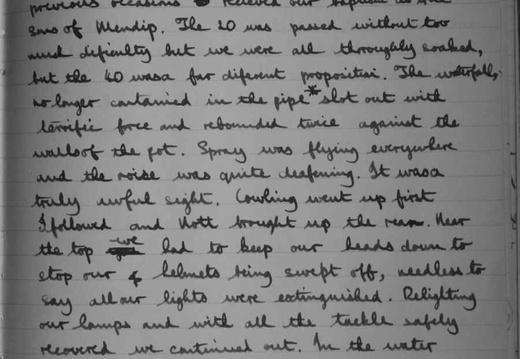 previous occasions recieved our baptism as the
sons of Mendip. The 20 was passed without too
much dificulty but we were all throughly soaked,
but the 40 wasa far diferent proposition. The waterfall,
no longer contained in the pipe* shot out with
terrific force and rebounded twice against the
wallsof the pot. Spray was flying everywhere
and the noise was quite deafening. It wasa
truly awful sight. Cowling went up first
I followed and Nott brought up the rear. Near
the top we had to keep our heads down to
stop our helmets being swept off, needless to
say all our lights were extinguished. Relighting
our lamps and with all the tackle safely
recovered we continued out. In the water